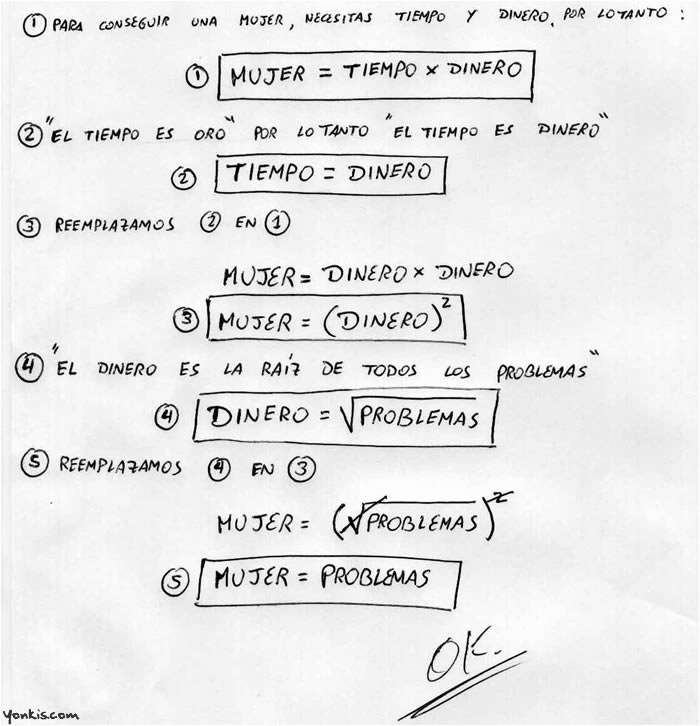 ① PARA CONSEGUIR UNA MUJER, NECESITAS TIEMPO Y DINERO, POR LO TANTO :
① MUJER = TIEMPO × DINERO
② "EL TIEMPO ES ORO" POR LO TANTO "EL TIEMPO ES DINERO"
② TIEMPO = DINERO
③ REEMPLAZAMOS ② EN ①
MUJER = DINERO × DINERO
③ MUJER = (DINERO)²
④ "EL DINERO ES LA RAÍZ DE TODOS LOS PROBLEMAS"
④ DINERO = √PROBLEMAS
⑤ REEMPLAZAMOS ④ EN ③
MUJER = (√PROBLEMAS)²
⑤ MUJER = PROBLEMAS
OK.
Yonkis.com